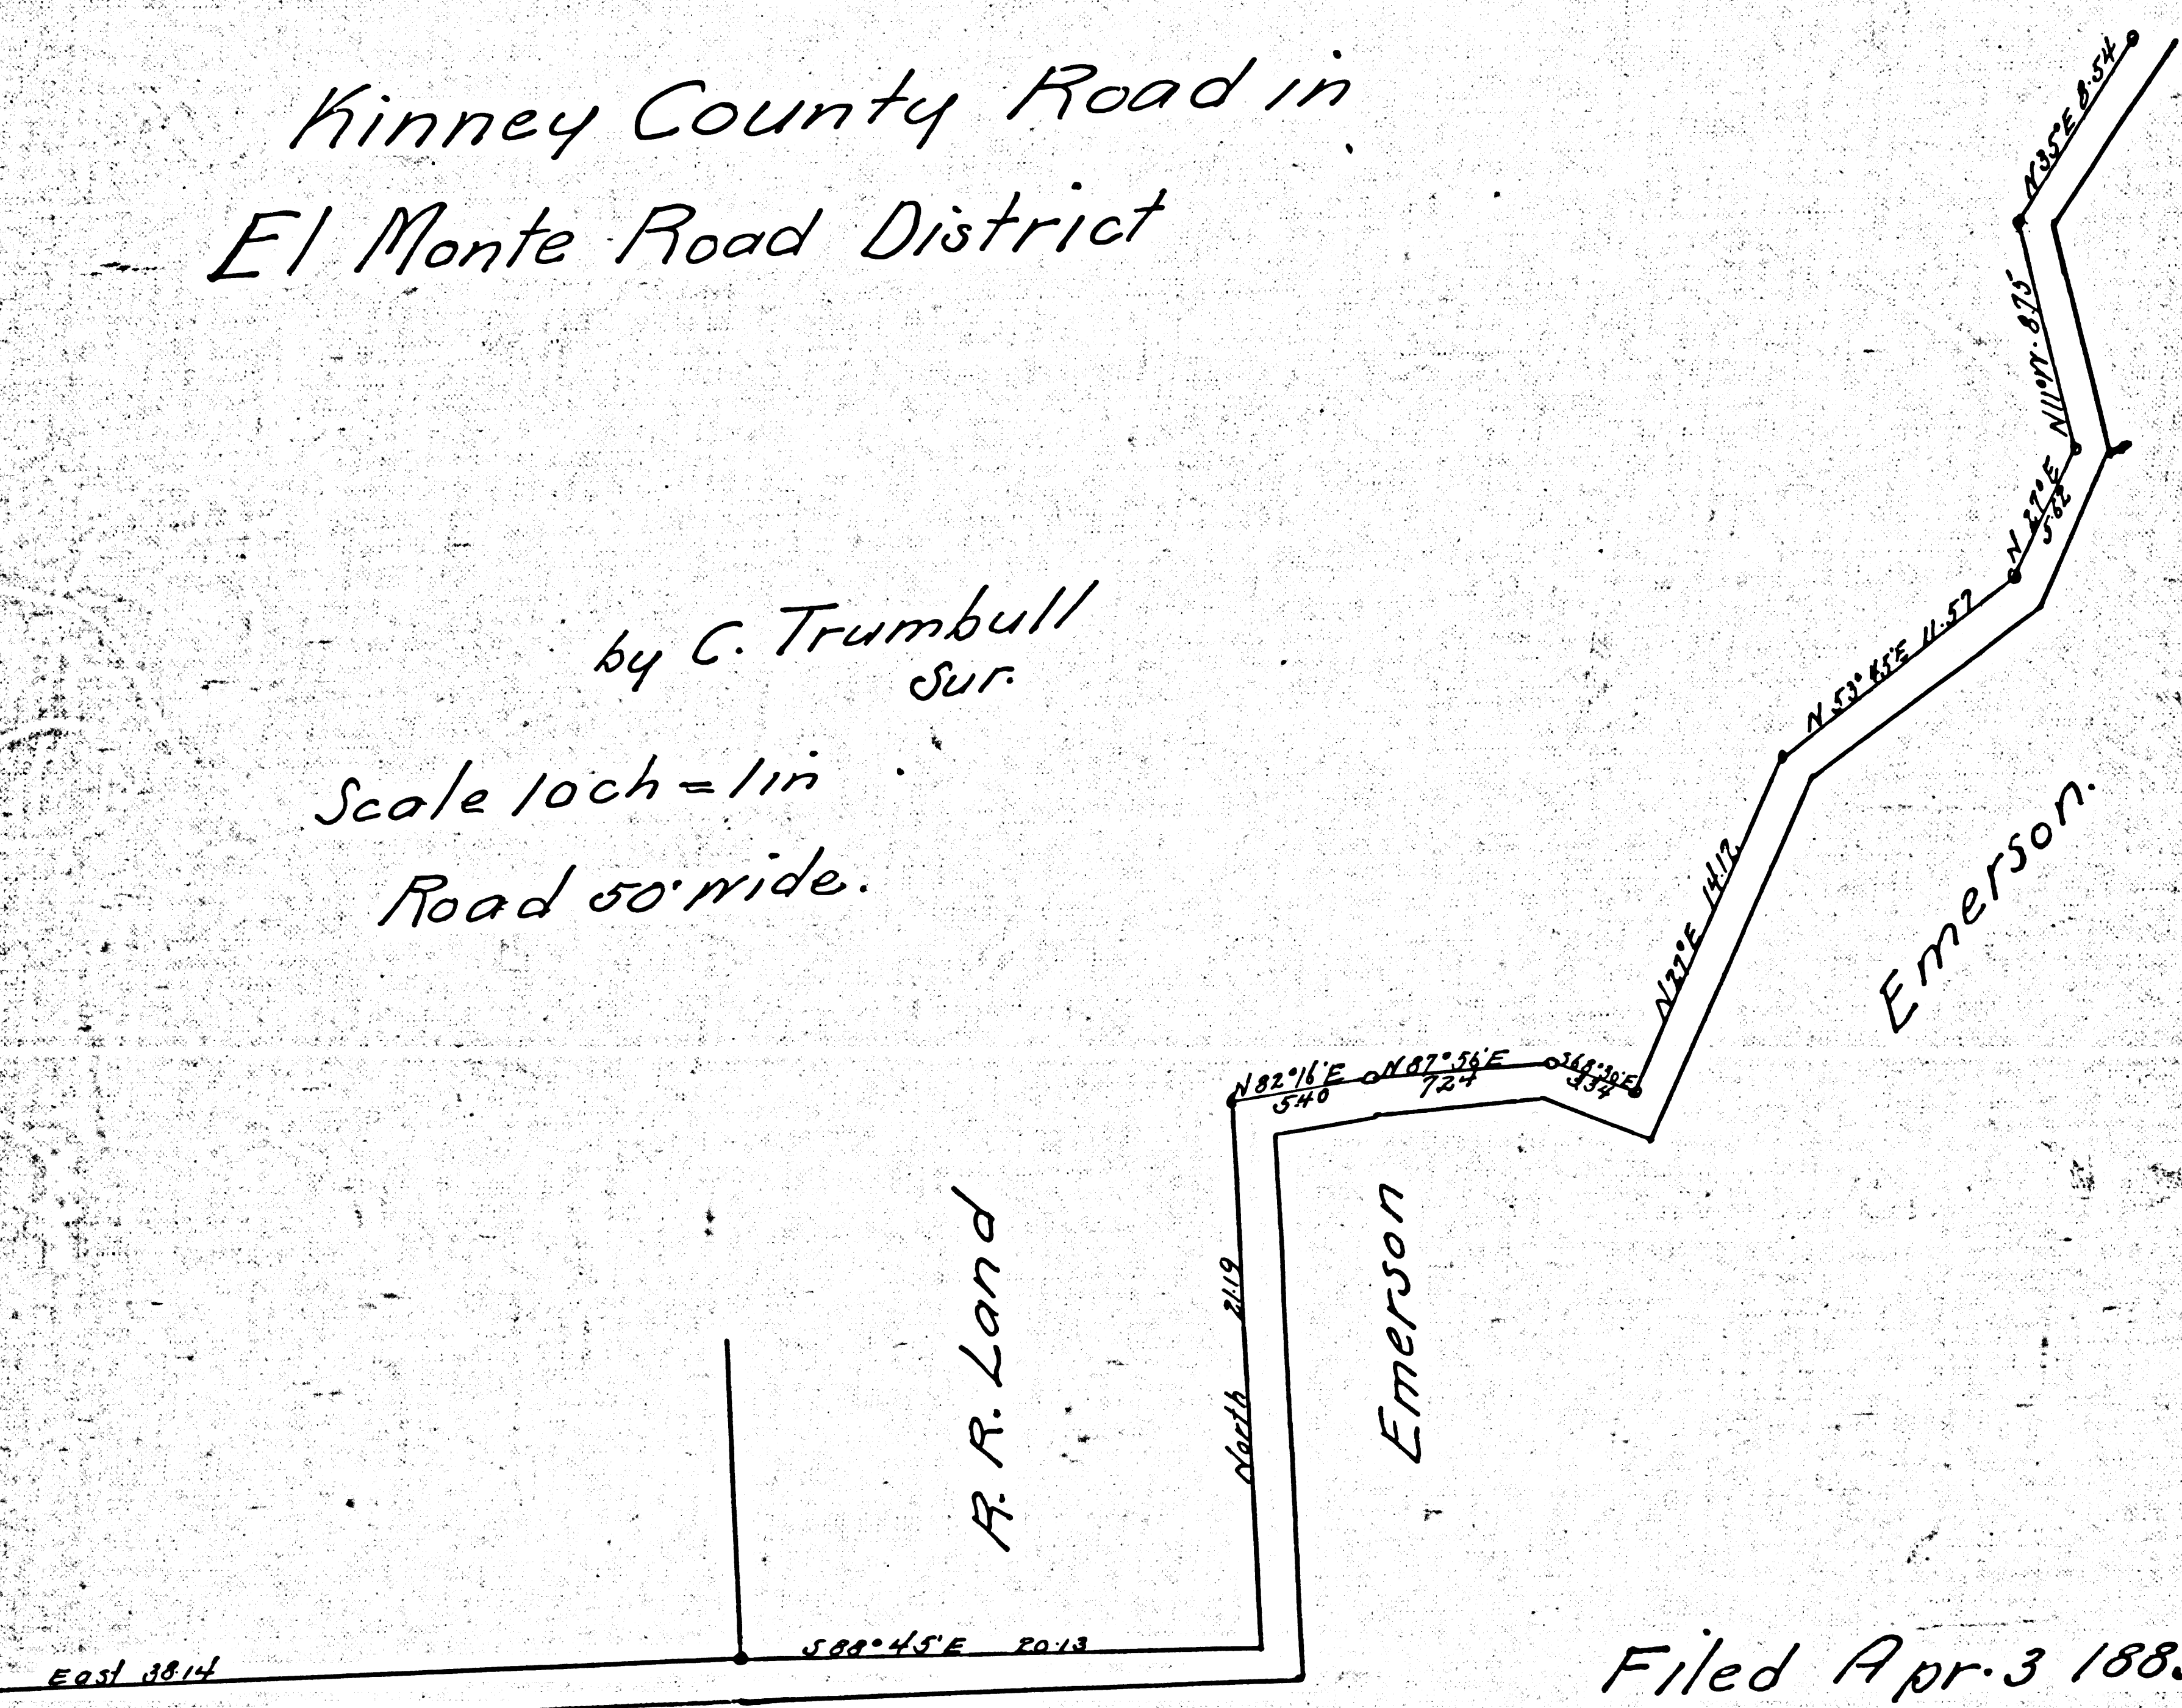 Kinney County Road in
El Monte Road District
by C. Trumbull
Sur.
Scale 10ch = 1in
Road 50' wide.
N35°E 8.54
N11°W. 8.75
N 27°E
5.62
N 53°45'E 11.57
N27°E 14.12
Emerson.
N82°16'E
540
N87°56'E
724
S68°30'E
334
R. R. Land
North 21.19
Emerson
East 38.14
S88°45'E 20.13
Filed Apr. 3 188